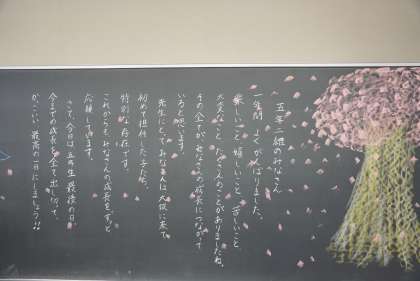 五年二組のみなさん
一年間 よくがんばりました。
楽しいこと、嬉しいこと、苦しいこと、
大変なこと、たくさんのことがありましたね。
その全てが、みなさんの成長につながって
いると思います。
先生にとって、みなさんは大阪に来て
初めて担任した子たち。
特別な存在です。
これからも、みなさんの成長をずっと
応援してます。
さて、今日は五年生最後の日。
今までの成長を全て出し切って、
かっこいい最高の一日にしましょう!!